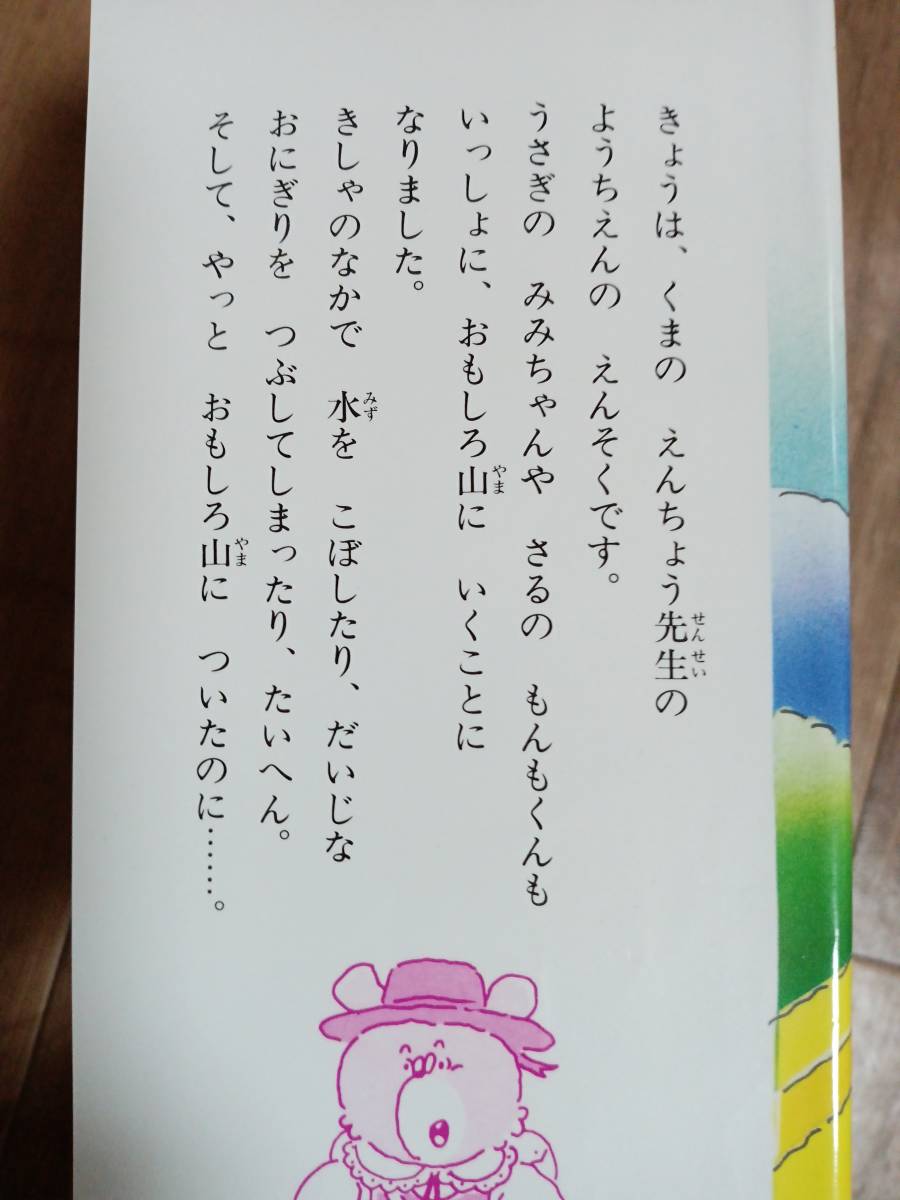 きょうは、くまの　えんちょう先生の
ようちえんの　えんそくです。
うさぎの　みみちゃんや　さるの　もんもくんも
いっしょに、おもしろ山に　いくことに
なりました。
きしゃのなかで　水を　こぼしたり、だいじな
おにぎりを　つぶしてしまったり、たいへん。
そして、やっと　おもしろ山に　ついたのに……。